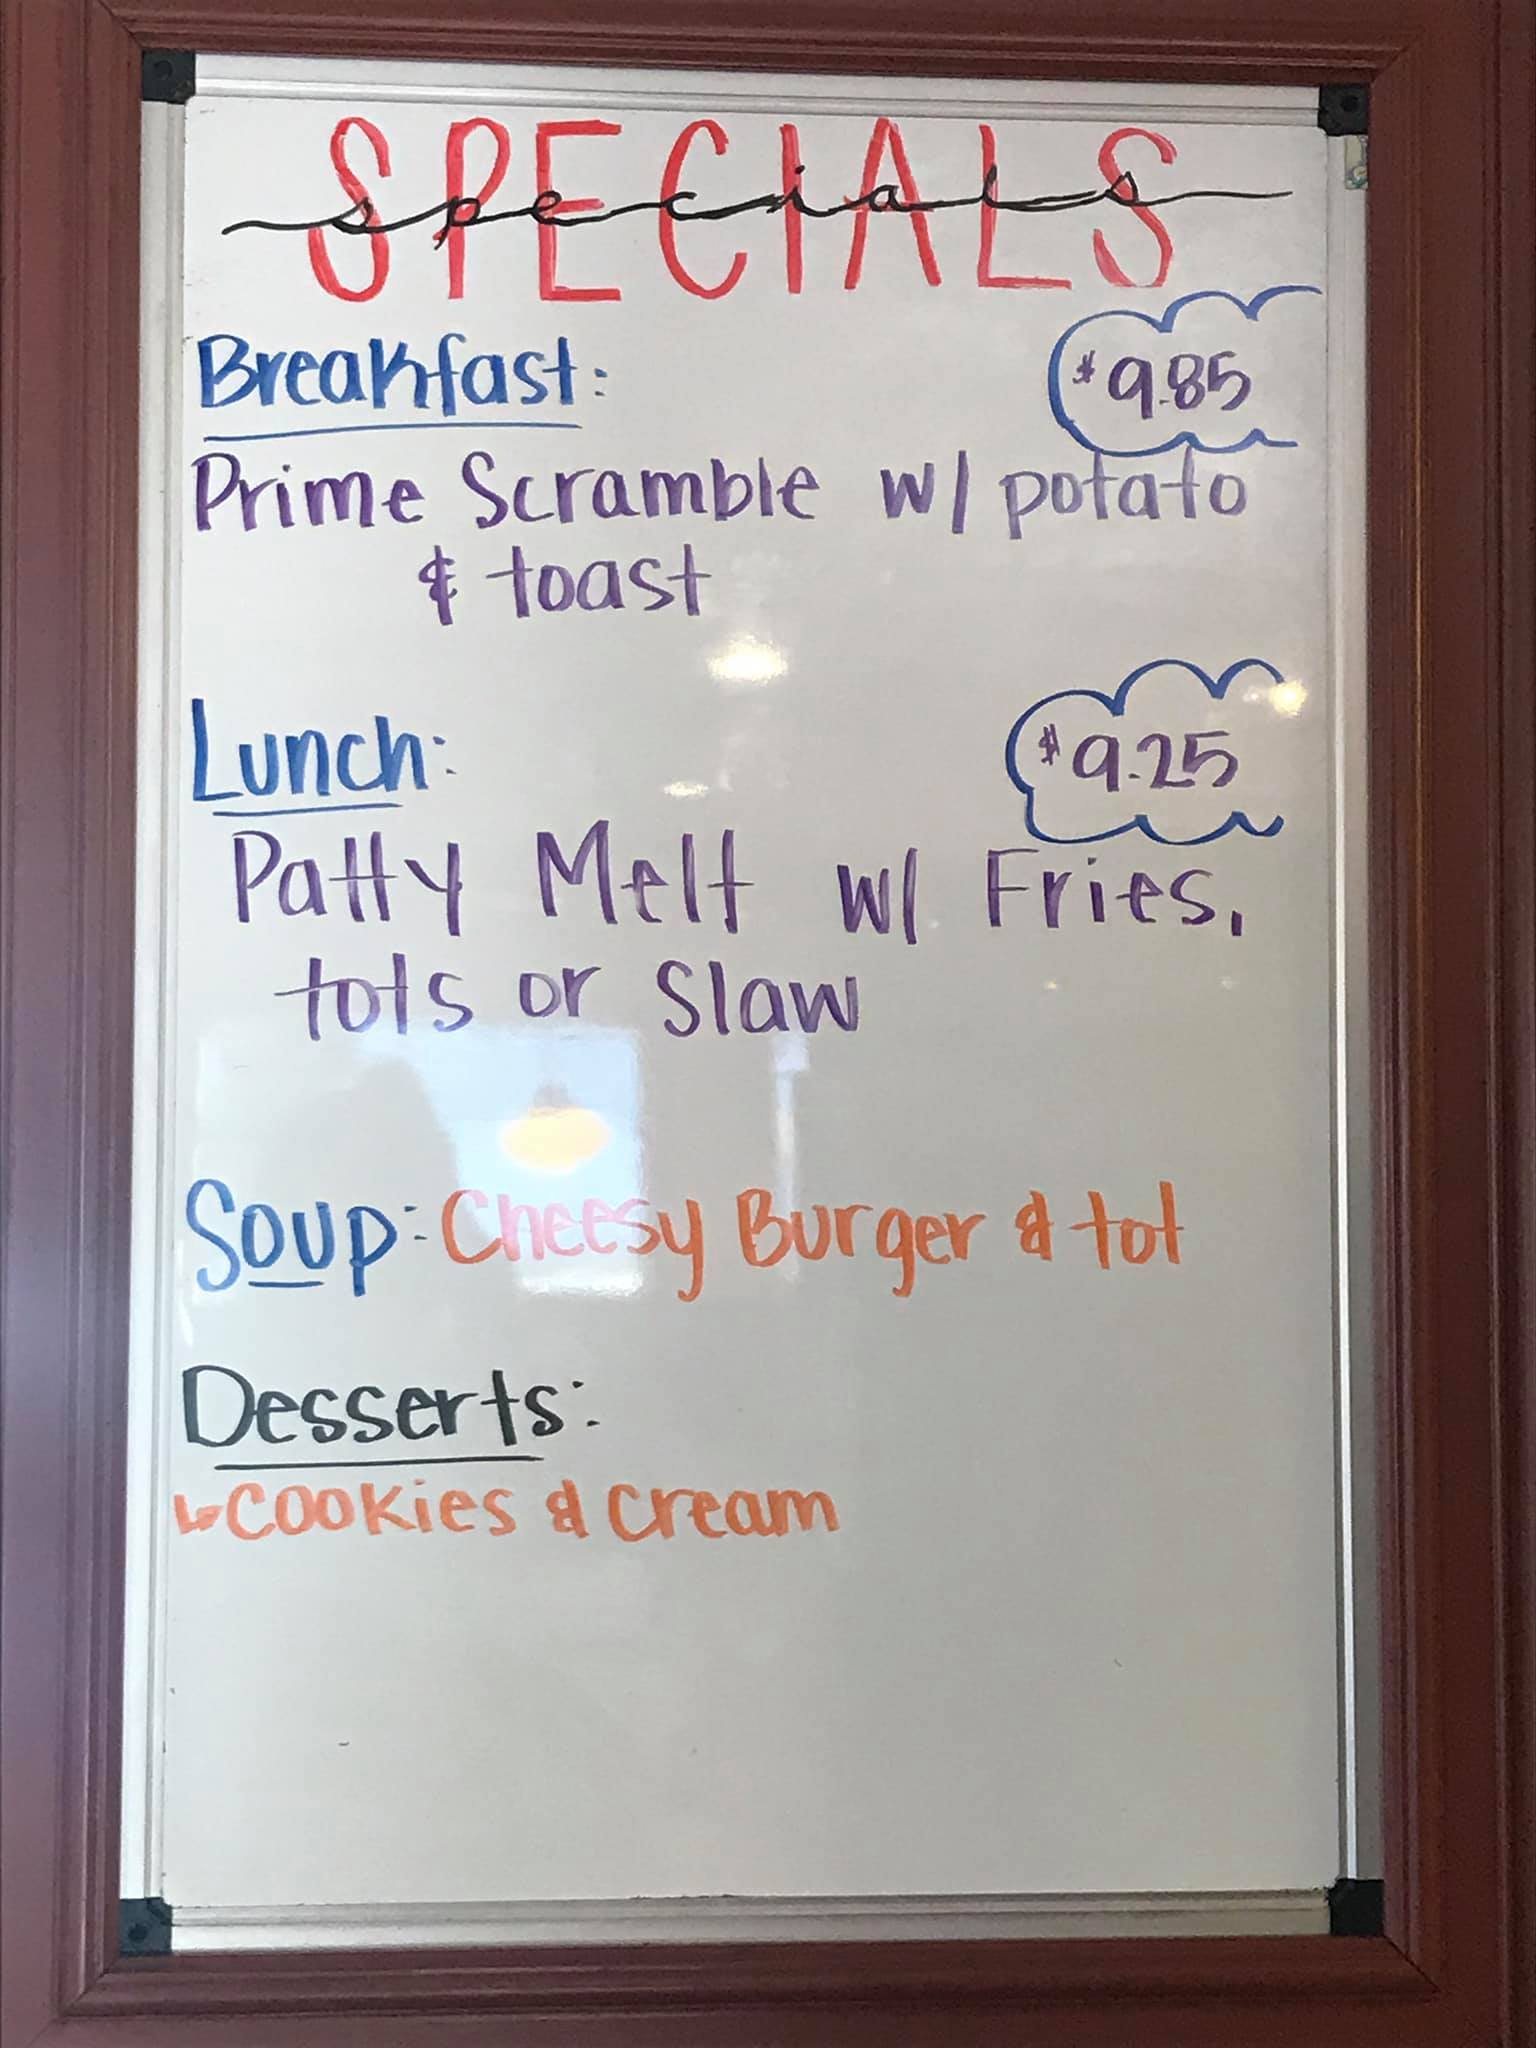 SPECIALS
specials
Breakfast: $9.85
Prime Scramble w/ potato
& toast
Lunch: $9.25
Patty Melt w/ Fries,
tots or Slaw
Soup: Cheesy Burger & tot
Desserts:
↳ Cookies & Cream